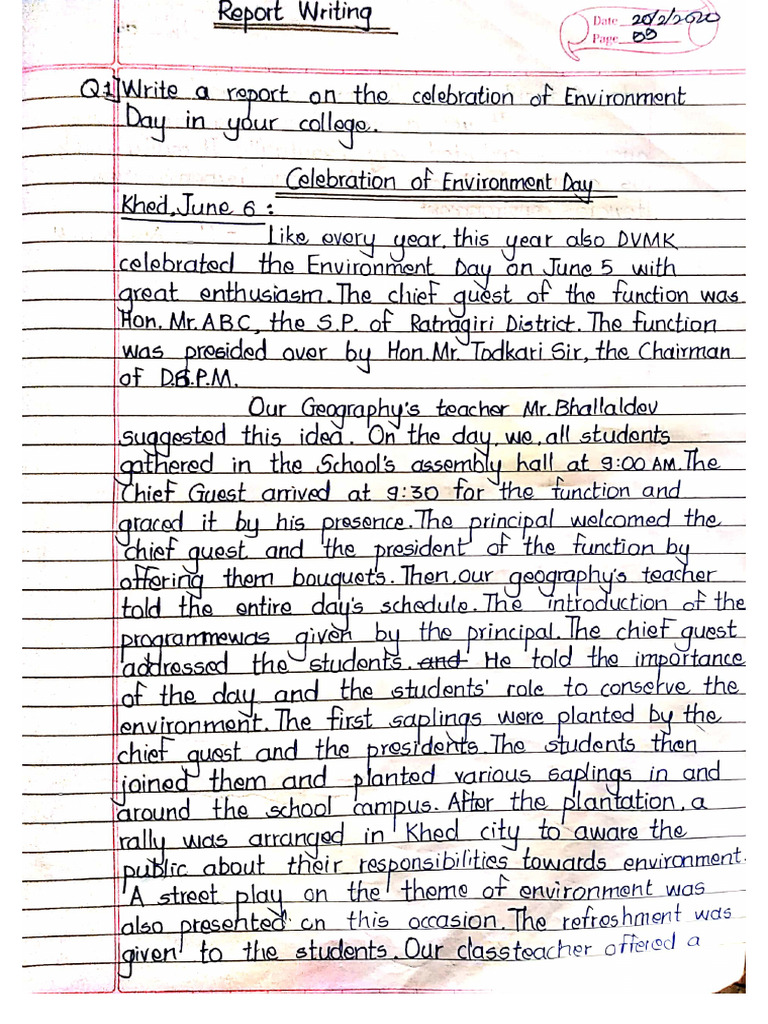 Report Writing
Date 20/2/2020
Page 09
Q1] Write a report on the celebration of Environment
Day in your college.
Celebration of Environment Day
Khed, June 6 :
Like every year, this year also DVMK
celebrated the Environment Day on June 5 with
great enthusiasm. The chief guest of the function was
Hon. Mr. ABC, the S.P. of Ratnagiri District. The function
was presided over by Hon. Mr. Todkari Sir, the Chairman
of D.S.P.M.
Our Geography's teacher Mr. Bhallaldev
suggested this idea. On the day, we, all students
gathered in the School's assembly hall at 9:00 AM. The
Chief Guest arrived at 9:30 for the function and
graced it by his presence. The principal welcomed the
chief guest and the president of the function by
offering them bouquets. Then, our geography's teacher
told the entire day's schedule. The introduction of the
programmewas given by the principal. The chief guest
addressed the students. and He told the importance
of the day and the students' role to conserve the
environment. The first saplings were planted by the
chief guest and the presidents. The students then
joined them and planted various saplings in and
around the school campus. After the plantation, a
rally was arranged in Khed city to aware the
public about their responsibilities towards environment.
A street play on the theme of environment was
also presented on this occasion. The refreshment was
given to the students. Our classteacher offered a